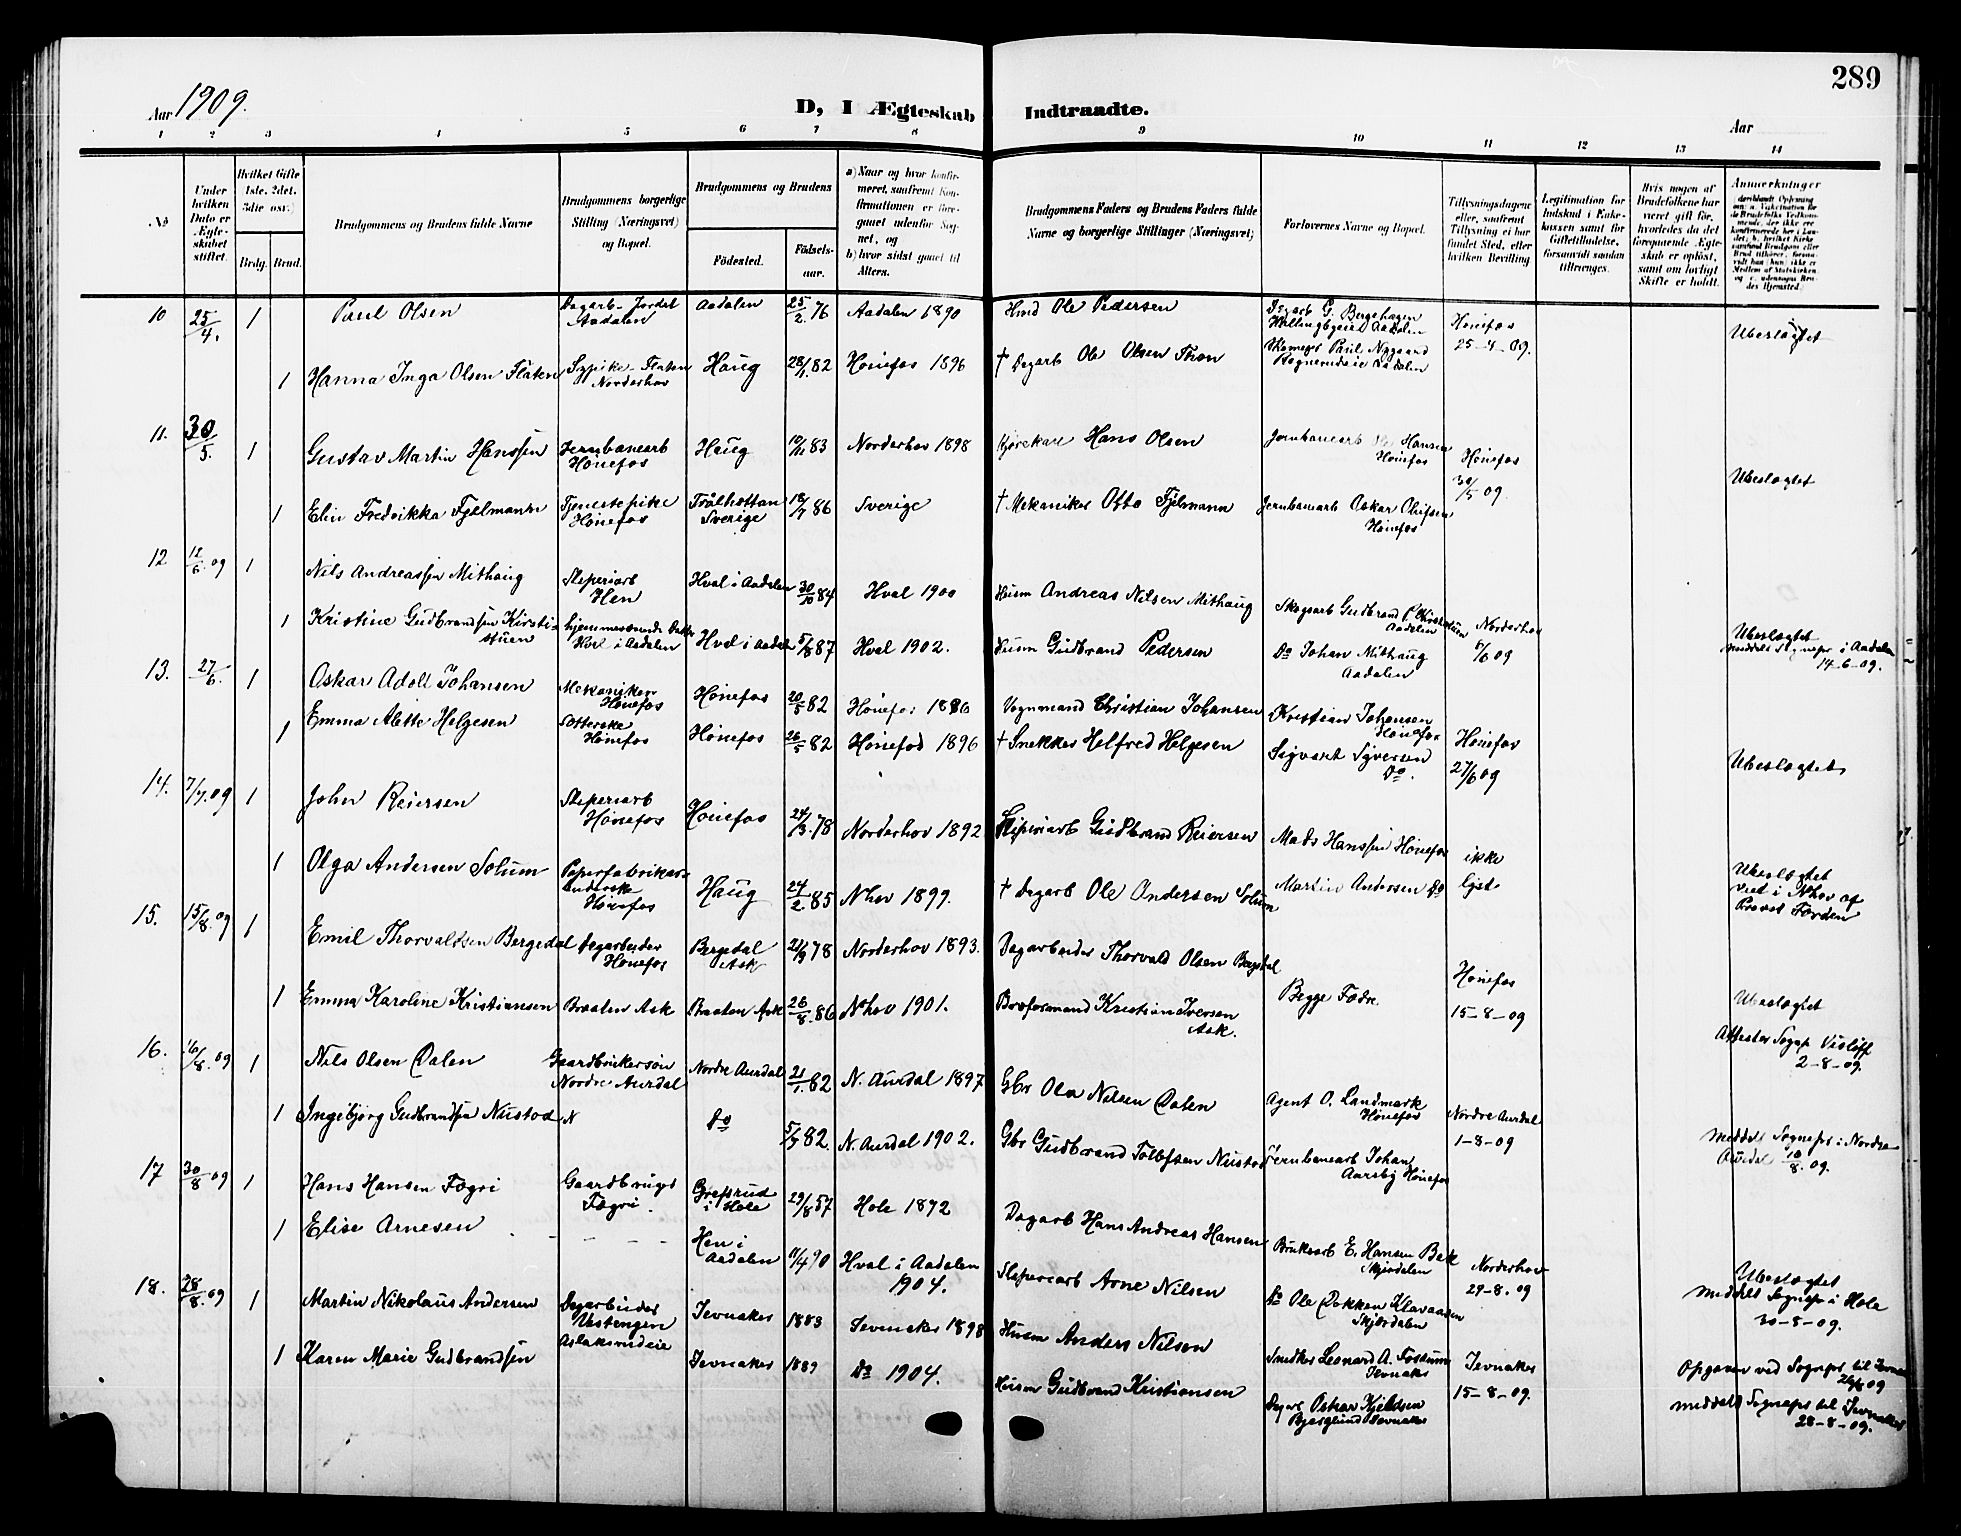 289
Aar 1909.
D, I Ægteskab Indtraadte.
Aar
1 2 3 4 5 6 7 8 9 10 11 12 13 14
No
Under hvilken Dato er Ægteskabet stiftet.
Hvilket Gifte 1ste, 2det, 3die osv.)
Brdg. Brud.
Brudgommens og Brudens fulde Navne
Brudgommens borgerlige Stilling (Næringsvei) og Bopæl.
Brudgommens og Brudens
Fødested.
Fødselsaar.
a) Naar og hvor konfirmeret, saafremt Konfirmationen er foregaaet udenfor Sognet, og
b) hvor sidst gaaet til Alters.
Brudgommens Faders og Brudens Faders fulde Navne og borgerlige Stillinger (Næringsvei)
Forlovernes Navne og Bopæl.
Tillysningsdagene eller, saafremt Tillysning ei har fundet Sted, efter hvilken Bevilling
Legitimation for Indskud i Enkekassen samt for Giftetilladelse, forsaavidt saadan tiltrænges.
Hvis nogen af Brudefolkene har været gift før, hvorledes da det foregaaende Ægteskab er opløst, samt om lovligt Skifte er holdt.
Anmærkninger
10 25/4. 1 Paul Olsen Dagarb. Jordet Aadalen Aadalen 25/2. 76 Aadalen 1890 Hmd Ole Pedersen Dagarb G. Bergehagen Aadalen Hønefos 25-4-09. Ubeslægtet
1 Hanna Inga Olsen Flaten Sypike Flaten Norderhov Haug 28/1. 82 Hønefos 1896 † Dagarb Ole Olsen Thon Paul Nygaard Aadalen
11. 30/5. 1 Gustav Martin Hanssen Jernbanearb Hønefos Haug 10/11 83 Norderhov 1898 Kjørekarl Hans Olsen Jernbanearb Hansen Hønefos Hønefos 30/5 09. Ubeslægtet
1 Elin Fredrikka Fjelmann Tjenestepike Hønefos Trålhättan Sverige 18/7 86 Sverige † Mekaniker Otto Fjelmann Jernbanearb Oskar Olufsen Hønefos
12 12/6. 09 1 Nils Andreassen Mithaug Sliperiarb Hen Hval i Aadalen 30/10 84 Hval 1900 Husm Andreas Nilsen Mithaug Skogsarb Gudbrand Aadalen Norderhov 6/6 09 Ubeslægtet
1 Kristine Gudbrandsen Kirstistuen hjemmeværende Datter i Aadalen Hval i Aadalen 5/8 87 Hval 1902. Husm Gudbrand Pedersen Do Johan Mithaug Aadalen meddelt Sognepr i Aadalen 14-6-09.
13. 27/6. 1 Oskar Adolf Johansen Mekaniker Hønefos Hønefos 20/5 82 Hønefos 1896 Vognmand Christian Johansen Kristian Johansen Hønefos Hønefos 27/6 09 Ubeslægtet
1 Emma Alette Helgesen Hønefos Hønefos 26/5 82 Hønefos 1896 † Snekker Helfred Helgesen Sigvart Syversen Do.
14. 7/7. 09 1 John Reiersen Sliperiarb Hønefos Hønefos 24/3. 78 Norderhov 1892 Sliperiarb Gudbrand Reiersen Mads Hanssen Hønefos ikke lyst Ubeslægtet
1 Olga Andersen Solum Papirfabrikarb Hønefos Haug 24/2. 85 Nhov 1899. † Dagarb Ole Andersen Solum Martin Andersen Do viet i Nhov af Provst Førden
15. 15/8. 09 1 Emil Thorvaldsen Bergedal Dagarbeider Hønefos Bergedal Ask 21/9 78 Norderhov 1893. Dagarbeider Thorvald Olsen Bergdal Begge Fædre. Hønefos 15-8-09 Ubeslægtet
1 Emma Karoline Kristiansen Braaten Ask Braaten Ask 26/8. 86 Nhov 1901. Kristian Iversen Ask.
16. 16/8. 09 1 Nils Olsen Dalen Gaardbrukersøn Nordre Aurdal Nordre Aurdal 21/1. 82 N. Aurdal 1897 Gbr Ola Nilsen Dalen Agent O. Landmark Hønefos Nordre Aurdal 1-8-09 Attester Sogepr Visløff 2-8-09.
1 Ingebjørg Gudbrandsen Nustad Do 5/7 82. N. Aurdal 1902. Gbr Gudbrand Tollefsen Nustad Jernbanearb Johan Aarsby Hønefos meddelt Sognepr i Nordre Aurdal 10/8. 09.
17 30/8 09 1 Hans Hansen Fægri Gaardbruger Fægri. Grefsrud i Hole 29/8 57 Hole 1872 Dagarb Hans Andreas Hansen Bruksarb E. Hansen Bak Skjørdalen Norderhov 29-8.09 Ubeslægtet
1 Elise Arnesen - - - - - Hen i Aadalen 11/4 90 Hval i Aadalen 1904. Sliperiarb Arne Nilsen Do Ole Skjørdalen meddelt Sognepr i Hole 30-8-09.
18. 28/8. 09 1 Martin Nikolaus Andersen Dagarbeider Vestengen Jevnaker 1883 Jevnaker 1898 Husm Anders Nilsen Snedker Leonard A. Fossum Jevnaker Jevnaker 15-8-09. Opgaven ved Sognepr til
1 Karen Marie Gudbrandsen Aslaksrudeie Jevnaker 1889 Do 1904. Husm Gudbrand Kristiansen Dagarb Oskar Kjeldsen Jevnaker meddelt Sognepr til Jevnaker 28-8-09.